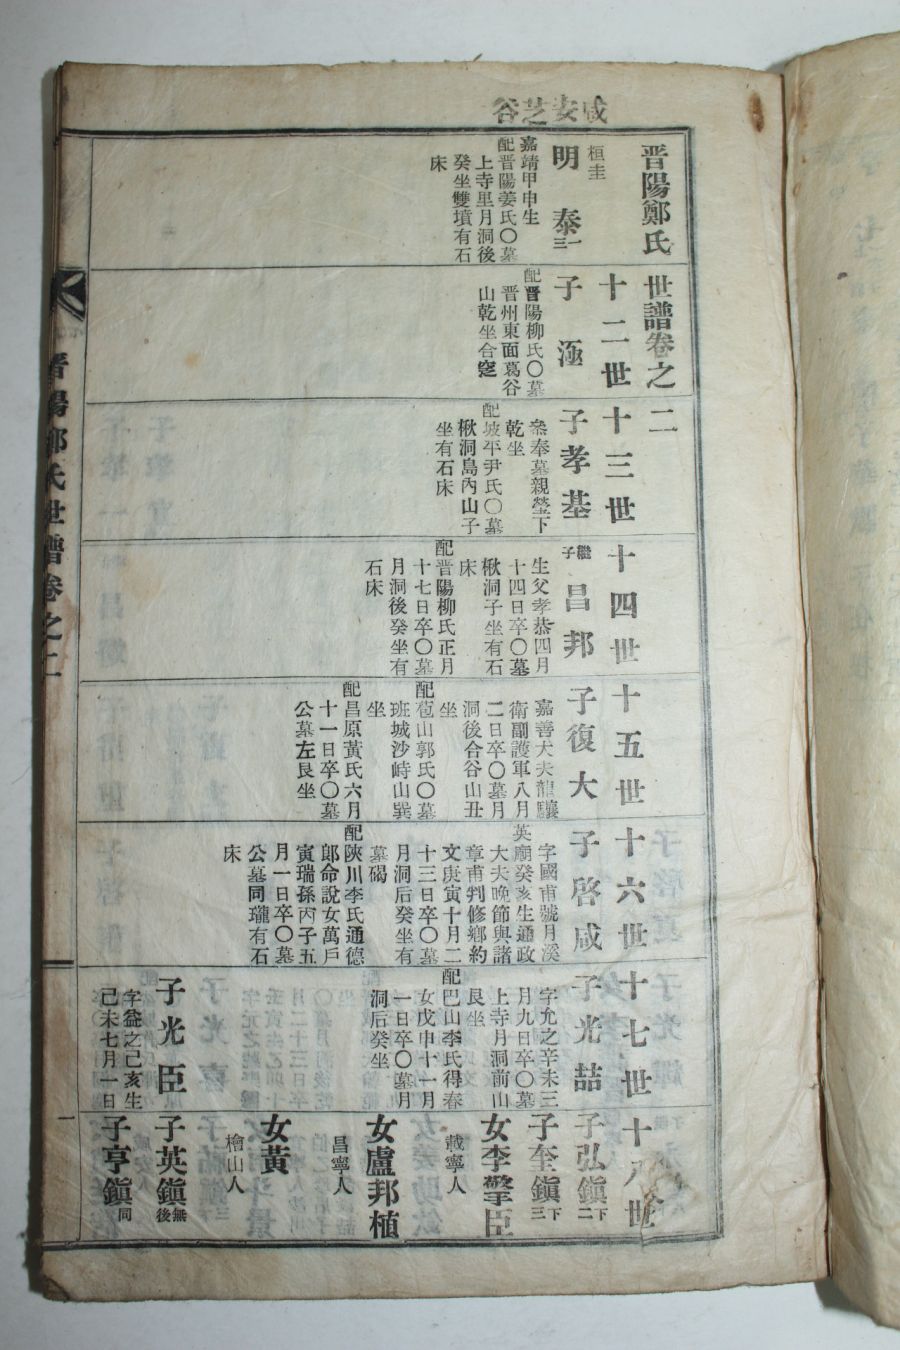 咸安芝谷
晋陽鄭氏
世譜卷之
二
桓圭
明泰
一三
嘉靖甲申生
配晋陽姜氏〇墓
上寺里月洞後
癸坐雙墳有石
床
十二世
子
配晋陽柳氏〇墓
晋州東面葛谷
山乾坐合窆
十三世
子孝基
叅奉墓親塋下
乾坐
配坡平尹氏〇墓
楸洞島內山子
坐有石床
十四世
繼子
昌邦
生父孝恭四月
十四日卒〇墓
楸洞子坐有石
床
配晋陽柳氏正月
十七日卒〇墓
月洞後癸坐有
石床
十五世
子復大
嘉善大夫龍驤
衛副護軍八月
二日卒〇墓月
洞後合谷山丑
坐
配苞山郭氏〇墓
班城沙峙山巽
坐
配昌原黃氏六月
十一日卒〇墓
公墓左艮坐
十六世
子啓咸
字國甫號月溪
英廟癸亥生通政
大夫晚節與諸
章甫判修鄕約
文庚寅十月二
十三日卒〇墓
月洞后癸坐有
墓碣
配陜川李氏通德
郞命說女萬戶
寅瑞孫丙子五
月一日卒〇墓
公墓同瓏有石
床
十七世
子光喆
字允之辛未三
月九日卒〇墓
上寺月洞前山
艮坐
配巴山李氏得春
女戊申十一月
一日卒〇墓月
洞后癸坐
子光臣
字益之己亥生
己未七月一日
十八世
子弘鎭
下二
子奎鎭
下三
女李擎臣
載寧人
女盧邦植
昌寧人
女黃
檜山人
子英鎭
無後
子亨鎭
同
晋陽鄭氏世譜卷之二
一